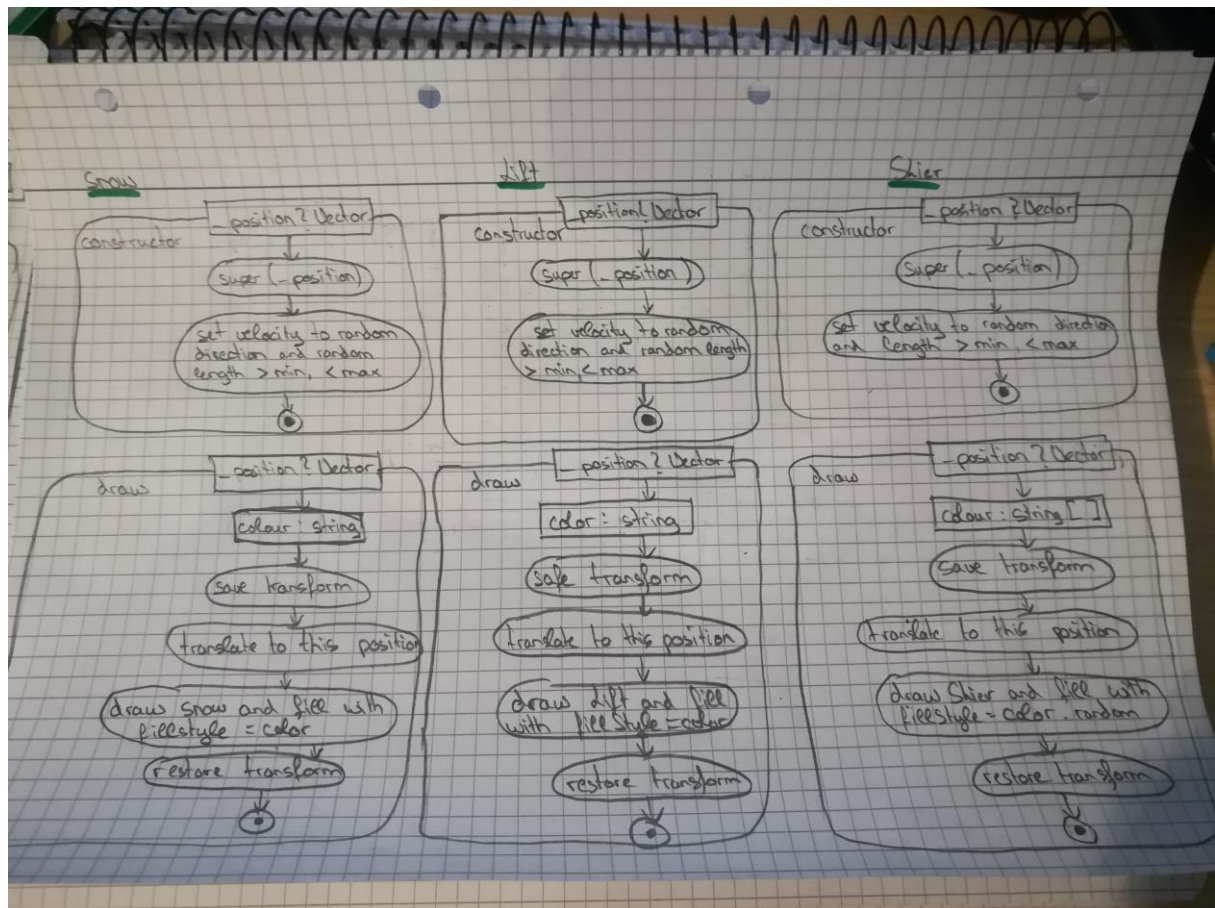 Snow
constructor
_position? Vector
super (_position)
set velocity to random
direction and random
length > min, < max
draw
_position? Vector
colour: string
save transform
translate to this position
draw snow and fill with
fillstyle = color
restore transform
Lift
constructor
_position? Vector
super (_position)
set velocity to random
direction and random length
> min, < max
draw
_position? Vector
color: string
safe transform
translate to this position
draw Lift and fill
with fillstyle = color
restore transform
Skier
constructor
_position? Vector
super (_position)
set velocity to random direction
and length > min, < max
draw
_position? Vector
colour: string[]
save transform
translate to this position
draw Skier and fill with
fillstyle = color.random
restore transform